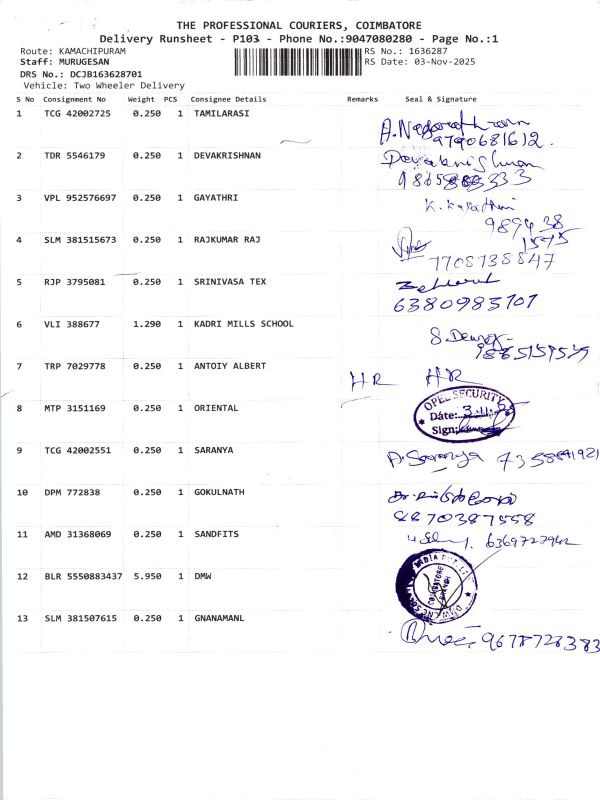 THE PROFESSIONAL COURIERS, COIMBATORE
Delivery Runsheet - P103 - Phone No.:9047080280 - Page No.:1
Route: KAMACHIPURAM RS No.: 1636287
Staff: MURUGESAN RS Date: 03-Nov-2025
DRS No.: DCJB163628701
Vehicle: Two Wheeler Delivery
S No Consignment No Weight PCS Consignee Details Remarks Seal & Signature
1 TCG 42002725 0.250 1 TAMILARASI
9790681612.
2 TDR 5546179 0.250 1 DEVAKRISHNAN Devakrishnan
3 VPL 952576697 0.250 1 GAYATHRI
989438
1575
4 SLM 381515673 0.250 1 RAJKUMAR RAJ
7708738847
5 RJP 3795081 0.250 1 SRINIVASA TEX
6380983701
6 VLI 388677 1.290 1 KADRI MILLS SCHOOL
7 TRP 7029778 0.250 1 ANTOIY ALBERT HR HR
8 MTP 3151169 0.250 1 ORIENTAL OPEL SECURITY
Date:
Sign:
9 TCG 42002551 0.250 1 SARANYA A. Saranya
10 DPM 772838 0.250 1 GOKULNATH
8870387558
11 AMD 31368069 0.250 1 SANDFITS 6369727942
12 BLR 5550883437 5.950 1 DMW
COIMBATORE
13 SLM 381507615 0.250 1 GNANAMANL 9678728383